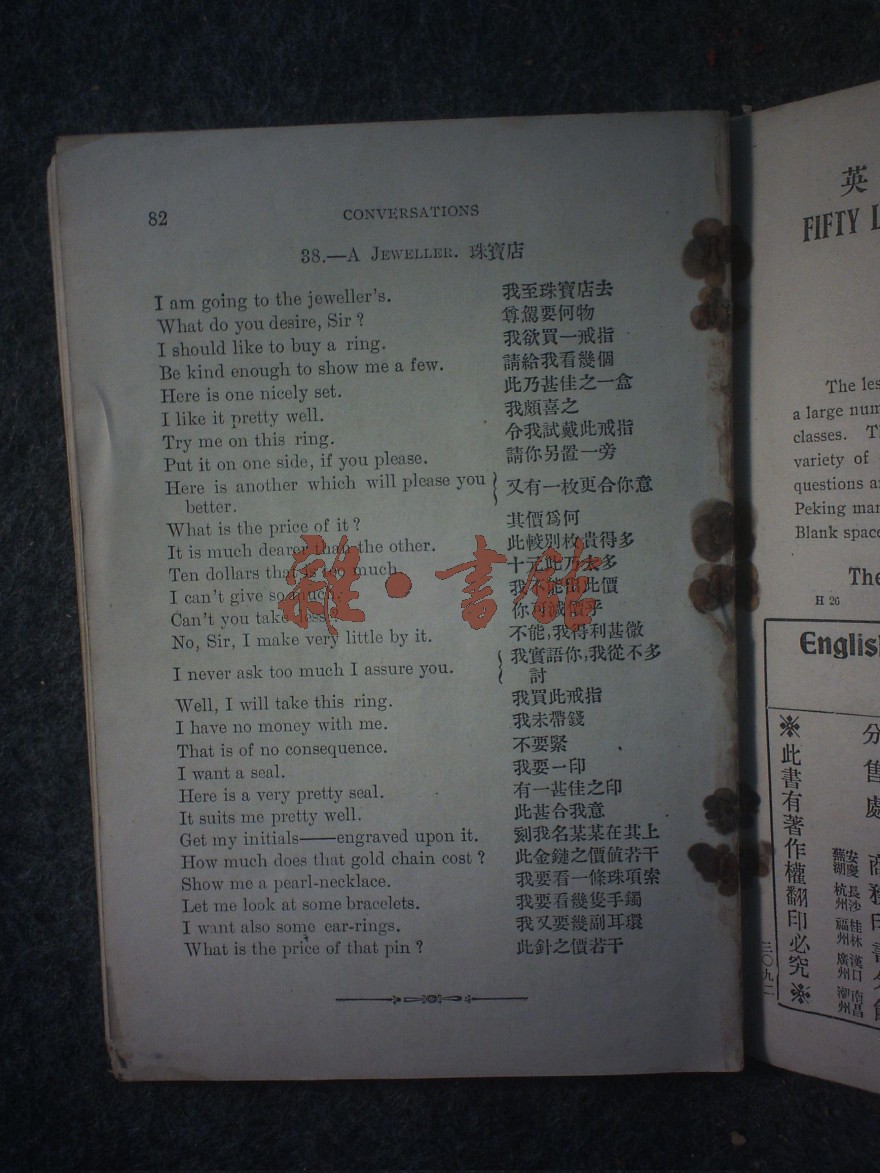 82 CONVERSATIONS
38.—A JEWELLER. 珠寶店
I am going to the jeweller's. 我至珠寶店去
What do you desire, Sir? 尊駕要何物
I should like to buy a ring. 我欲買一戒指
Be kind enough to show me a few. 請給我看幾個
Here is one nicely set. 此乃甚佳之一盒
I like it pretty well. 我頗喜之
Try me on this ring. 令我試戴此戒指
Put it on one side, if you please. 請你另置一旁
Here is another which will please you 又有一枚更合你意
better.
What is the price of it? 其價爲何
It is much dearer than the other. 此較別枚貴得多
Ten dollars that is too much. 十元此乃太多
I can't give so much. 我不能出此價
Can't you take less? 你可減價乎
No, Sir, I make very little by it. 不能,我得利甚微
I never ask too much I assure you. 我實語你,我從不多
討
Well, I will take this ring. 我買此戒指
I have no money with me. 我未帶錢
That is of no consequence. 不要緊
I want a seal. 我要一印
Here is a very pretty seal. 有一甚佳之印
It suits me pretty well. 此甚合我意
Get my initials——engraved upon it. 刻我名某某在其上
How much does that gold chain cost? 此金鏈之價値若干
Show me a pearl-necklace. 我要看一條珠項索
Let me look at some bracelets. 我要看幾隻手鐲
I want also some ear-rings. 我又要幾副耳環
What is the price of that pin? 此針之價若干
雜·書館
英
FIFTY L
The les
a large num
classes. Th
variety of
questions a
Peking man
Blank space
The
H 26
English
※此書有著作權翻印必究※
三〇九二
分售處
商務印書分館
安慶 長沙 桂林 漢口 南昌
蕪湖 杭州 福州 廣州 潮州